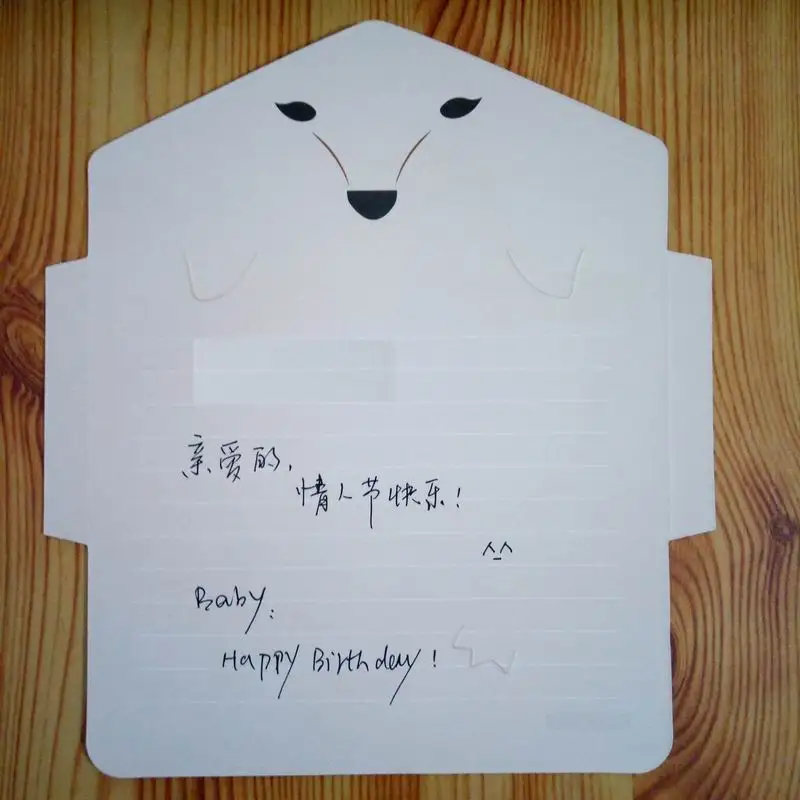 亲爱的,
情人节快乐!
^_^
Baby:
Happy Birthday!